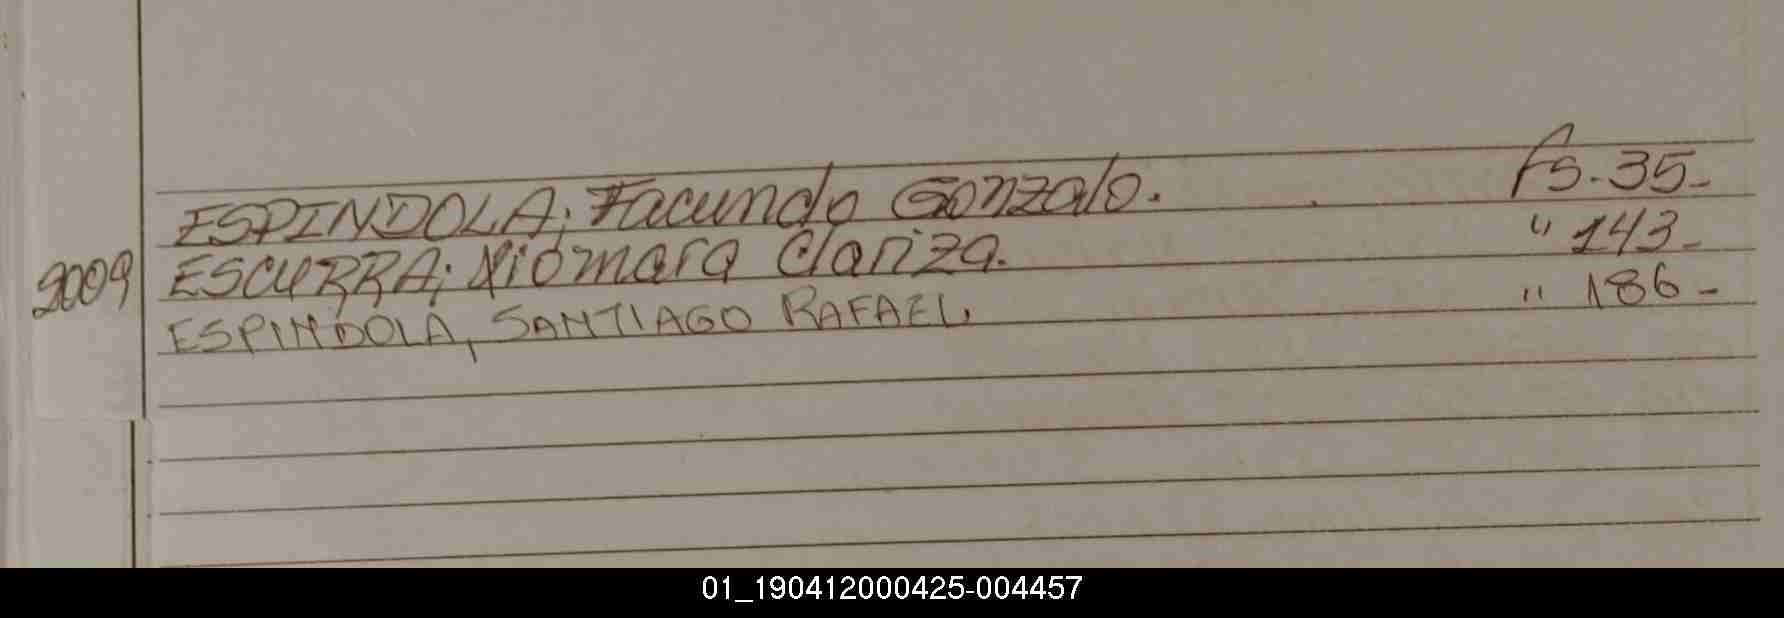 ESPINDOLA; Facundo Gonzalo. fs. 35-
2009 ESCURRA; Xiomara Clariza. " 143-
ESPINDOLA, SANTIAGO RAFAEL. " 186-
01_190412000425-004457